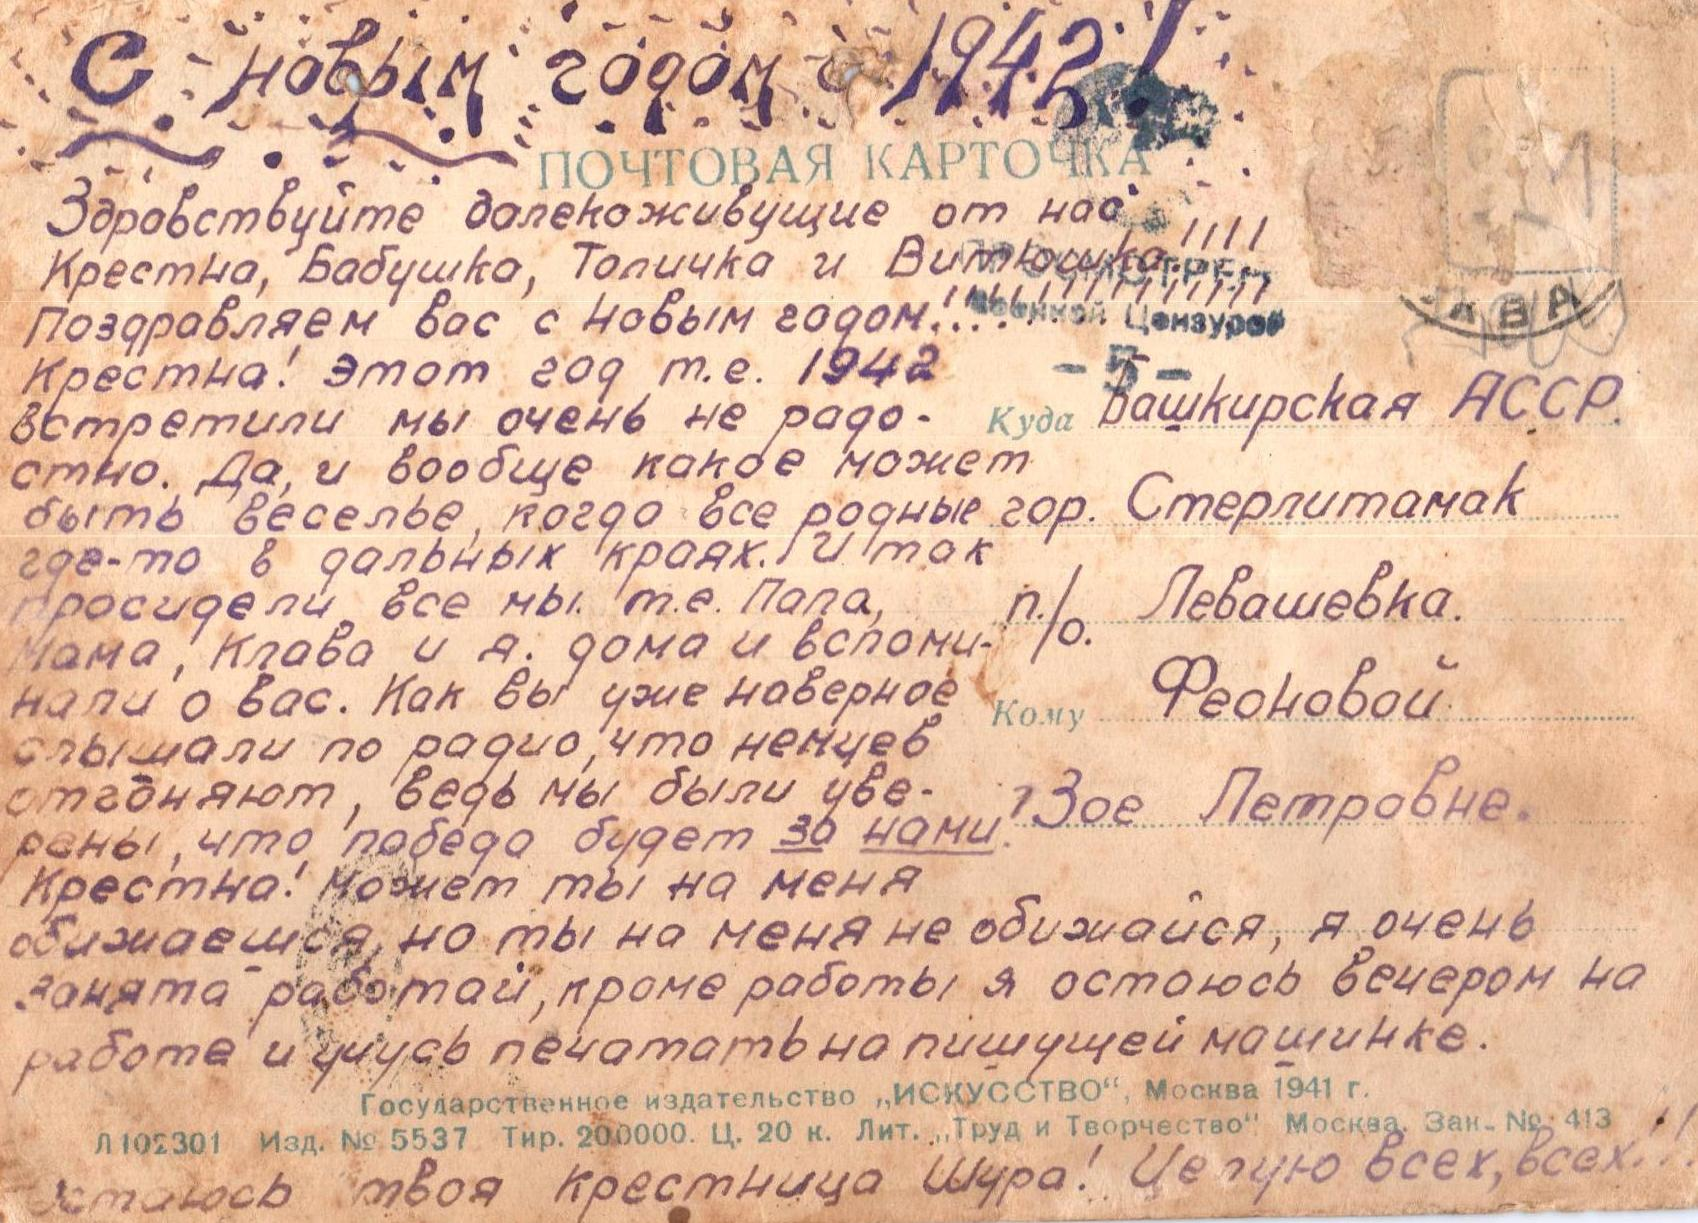 С новым годом 1942!
ПОЧТОВАЯ КАРТОЧКА
Здравствуйте далекоживущие от нас
Крестна, Бабушка, Толичка и Витюшка!!!!
Поздравляем вас с новым годом!
Военной Цензурой
Крестна! Этот год т.е. 1942
встретили мы очень не радо-
стно. Да, и вообще какое может
быть веселье, когда все родные
где-то в дальных краях. И так
просидели все мы. т.е. Папа,
Мама, Клава и я. дома и вспоми-
нали о вас. Как вы уже наверное
слышали по радио, что немцев
отгоняют, ведь мы были уве-
рены, что победа будет за нами.
Крестна! Может ты на меня
обижаешся, но ты на меня не обижайся, я очень
занята работай, кроме работы я остаюсь вечером на
работе и учусь печатать на пишущей машинке.
Куда Башкирская АССР.
гор. Стерлитамак
п./о. Левашевка.
Кому Феоновой
Зое Петровне.
Государственное издательство „ИСКУССТВО“, Москва 1941 г.
Л102301 Изд. № 5537 Тир. 200000. Ц. 20 к. Лит. „Труд и Творчество“ Москва. Зак. № 413
Остаюсь твоя Крестница Шура! Целую всех, всех!!!